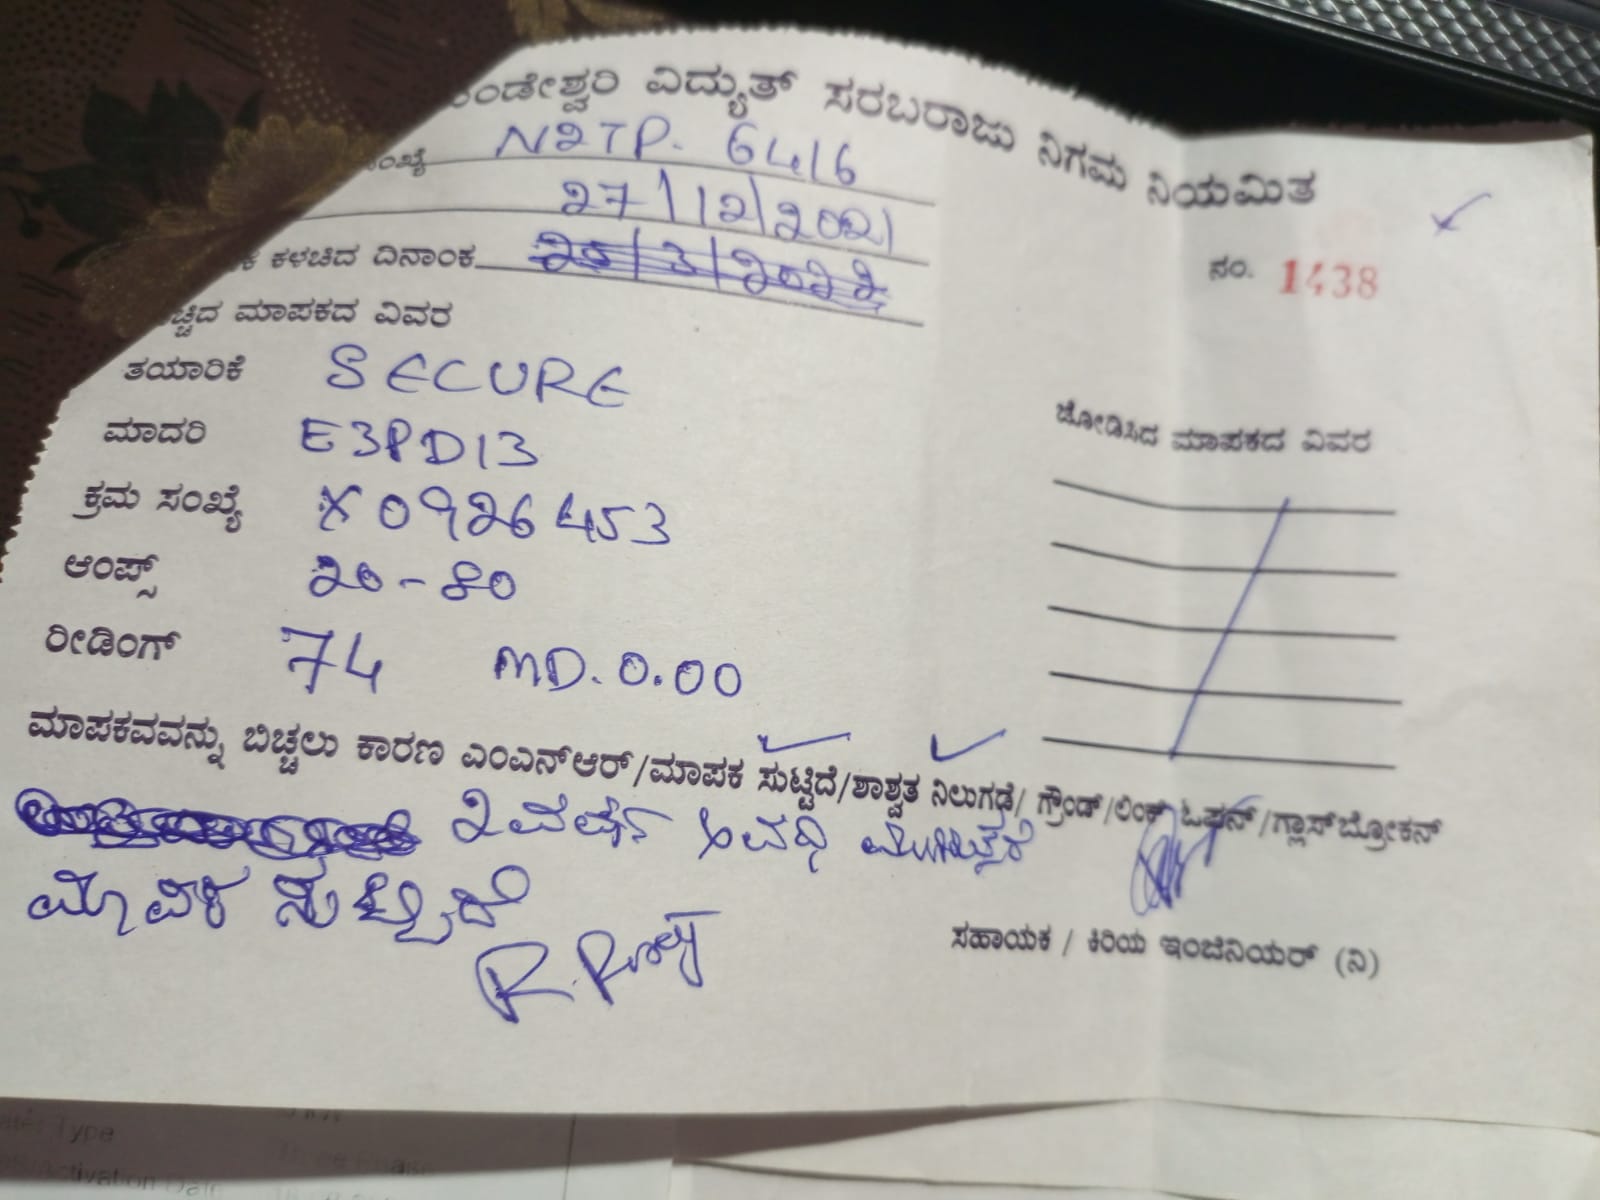 ವಿದ್ಯುತ್ ಸರಬರಾಜು ನಿಗಮ ನಿಯಮಿತ
N2TP. 6416
27/12/2021
ನಂ. 1438
ಕಳಚಿದ ದಿನಾಂಕ 25/3/2022
ಮಾಪಕದ ವಿವರ
ತಯಾರಿಕೆ SECURE
ಮಾದರಿ E3PD13
ಕ್ರಮ ಸಂಖ್ಯೆ X0926453
ಆಂಪ್ಸ್ 20-80
ರೀಡಿಂಗ್ 74 MD. 0.00
ಜೋಡಿಸಿದ ಮಾಪಕದ ವಿವರ
ಮಾಪಕವವನ್ನು ಬಿಚ್ಚಲು ಕಾರಣ ಎಂಎನ್ಆರ್/ಮಾಪಕ ಸುಟ್ಟಿದೆ/ಶಾಶ್ವತ ನಿಲುಗಡೆ/ ಗ್ರೌಂಡ್/ಲಿಂಕ್ ಓಪನ್/ಗ್ಲಾಸ್ ಬ್ರೋಕನ್
ಅವಧಿ
ಸಹಾಯಕ / ಕಿರಿಯ ಇಂಜಿನಿಯರ್ (ನಿ)
Type